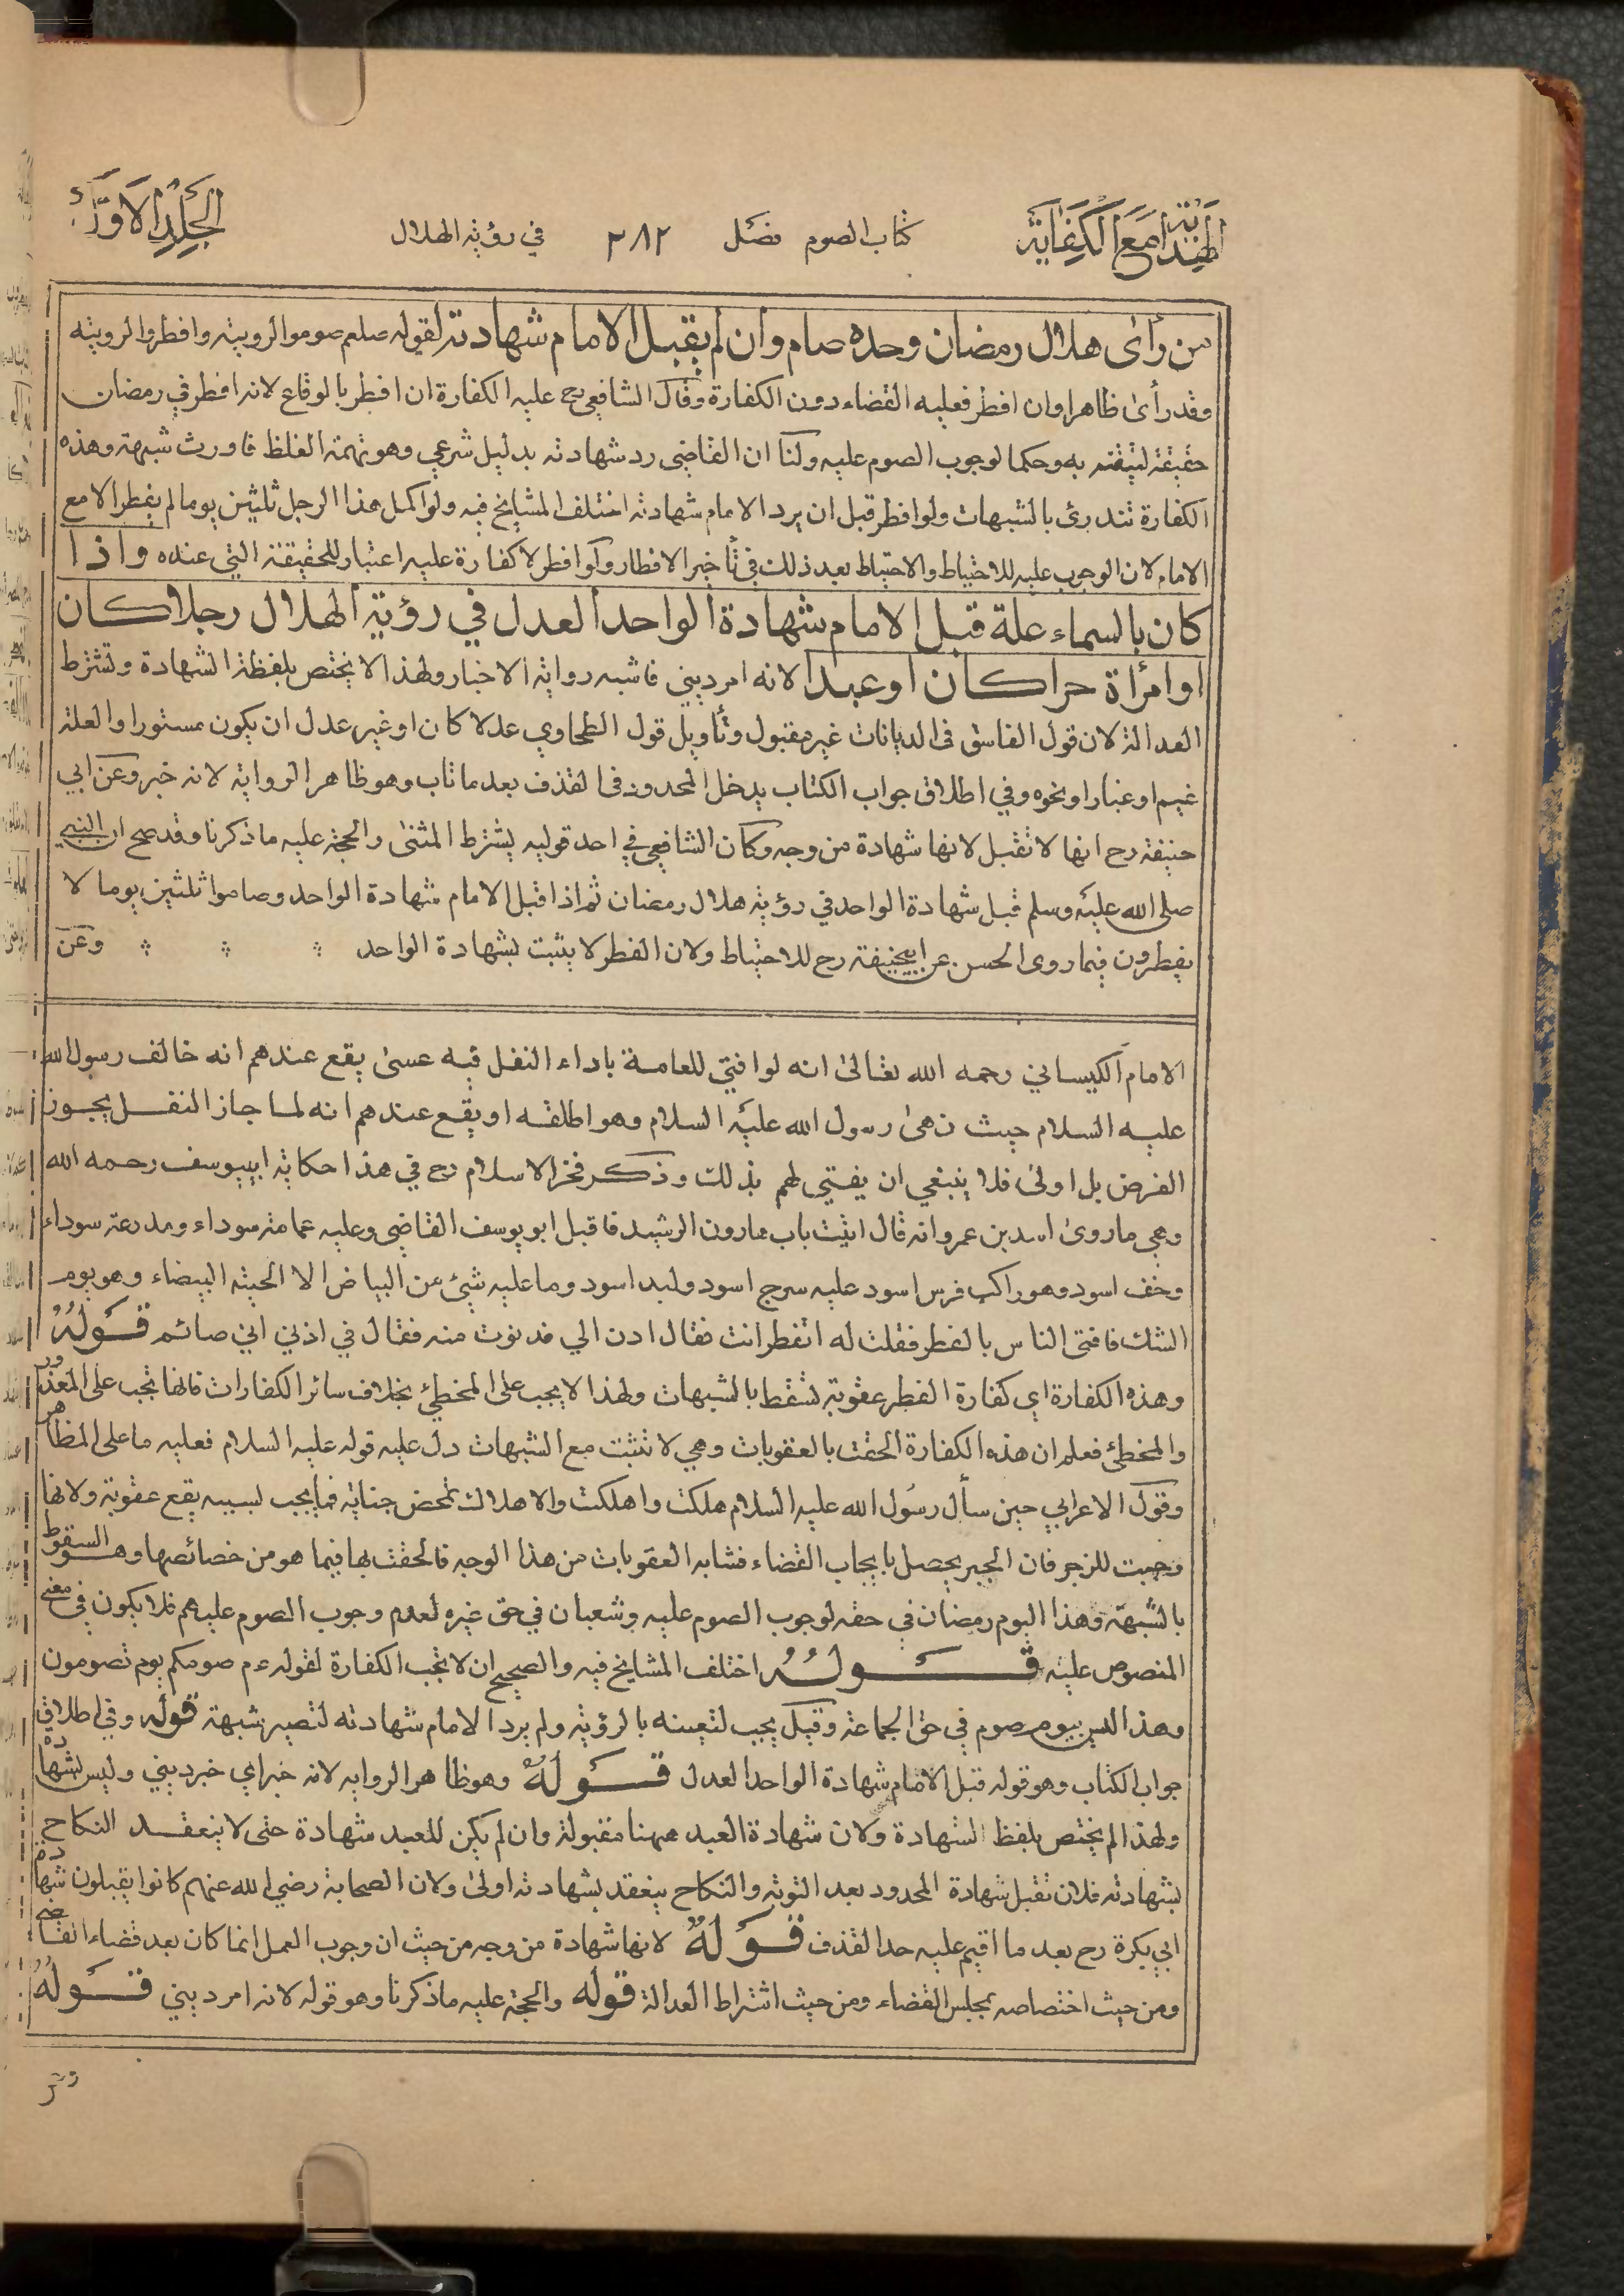 الهداية مع الكفاية
كتاب الصوم فصل
٢٨٢
في رؤية الهلال
الجلد الاول
من رأى هلال رمضان وحده صام وان لم يقبل الامام شهادته لقوله صلعم صوموا لرويته وافطروا لرويته
وقد رأى ظاهرا وان افطر فعليه القضاء دون الكفارة وقال الشافعي رح عليه الكفارة ان افطر بالوقاع لانه افطر في رمضان
حقيقة لتيقنه به وحكما لوجوب الصوم عليه ولنا ان القاضي رد شهادته بدليل شرعي وهو تهمة الغلظ فاورث شبهة وهذه
الكفارة تندرئ بالشبهات ولو افطر قبل ان يرد الامام شهادته اختلف المشايخ فيه ولو اكمل هذا الرجل ثلثين يوما لم يفطر الا مع
الامام لان الوجوب عليه للاحتياط والاحتياط بعد ذلك في تأخير الافطار ولو افطر لا كفارة عليه اعتبار للحقيقة التي عنده واذا
كان بالسماء علة قبل الامام شهادة الواحد العدل في رؤية الهلال رجلا كان
او امرأة حرا كان او عبدا لانه امر ديني فاشبه رواية الاخبار ولهذا لا يختص بلفظة الشهادة وتشترط
العدالة لان قول الفاسق فى الديانات غير مقبول وتأويل قول الطحاوي عدلا كان او غير عدل ان يكون مستورا والعلة
غيم او غبار او نحوه وفي اطلاق جواب الكتاب يدخل المحدود فى القذف بعد ما تاب وهو ظاهر الرواية لانه خبر وعن ابي
حنيفة رح انها لا تقبل لانها شهادة من وجه وكان الشافعي في احد قوليه يشترط المثنى والحجة عليه ما ذكرنا وقد صح ان النبي
صلى الله عليه وسلم قبل شهادة الواحد في رؤية هلال رمضان ثم اذا قبل الامام شهادة الواحد وصاموا ثلثين يوما لا
يفطرون فيما روى الحسن عن ابيحنيفة رح للاحتياط ولان الفطر لا يثبت بشهادة الواحد وعن
الامام الكيساني رحمه الله تعالى انه لو افتي للعامة باداء النفل فيه عسى يقع عندهم انه خالف رسول الله
عليه السلام حيث نهى رسول الله عليه السلام وهو اطلقه او يقع عندهم انه لما جاز النفل يجوز
الفرض بل اولى فلا ينبغي ان يفتي لهم بذلك وذكر فخر الاسلام رح في هذا حكاية ابيوسف رحمه الله
وهي ما روى اسد بن عمرو انه قال اتيت باب هارون الرشيد فاقبل ابو يوسف القاضي وعليه عمامة سوداء ومدرعة سوداء
وخف اسود وهو راكب فرس اسود عليه سرج اسود ولبد اسود وما عليه شيئ من البياض الا لحيته البيضاء وهو يوم
الشك فافتى الناس بالفطر فقلت له اتفطر انت فقال ادن الي فدنوت منه فقال في اذني اني صائم قوله
وهذه الكفارة اي كفارة الفطر عقوبة تسقط بالشبهات ولهذا لا يجب على المخطئ بخلاف سائر الكفارات فانها تجب على المعذور
والمخطئ فعلم ان هذه الكفارة الحقت بالعقوبات وهي لا تثبت مع الشبهات دل عليه قوله عليه السلام فعليه ما على المظاهر
وقول الاعرابي حين سأل رسول الله عليه السلام هلكت واهلكت والاهلاك بمحض جناية فما يجب لسببه يقع عقوبة ولانها
وجبت للزجر فان الجبر يحصل بايجاب القضاء فشابه العقوبات من هذا الوجه فالحقت بها فيما هو من خصائصها وهو السقوط
بالشبهة وهذا اليوم رمضان في حقه لوجوب الصوم عليه وشعبان في حق غيره لعدم وجوب الصوم عليهم فلا يكون في معنى
المنصوص عليه قوله اختلف المشايخ فيه والصحيح ان لا تجب الكفارة لقوله ءم صومكم يوم تصومون
وهذا ليس بيوم صوم في حق الجماعة وقيل يجب لتعينه بالرؤية ولم يرد الامام شهادته لتصير شبهة قوله وفي اطلاق
جواب الكتاب وهو قوله قبل الامام شهادة الواحد العدل قوله وهو ظاهر الرواية لانه خبر اي خبر ديني وليس بشهادة
ولهذا لم يختص بلفظ الشهادة ولان شهادة العبد ههنا مقبولة وان لم يكن للعبد شهادة حتى لا ينعقد النكاح
بشهادته فلان تقبل شهادة المحدود بعد التوبة والنكاح ينعقد بشهادته اولى ولان الصحابة رضي الله عنهم كانوا يقبلون شهادة
ابي بكرة رح بعد ما اقيم عليه حد القذف قوله لانها شهادة من وجه من حيث ان وجوب العمل انما كان بعد قضاء القاضي
ومن حيث اختصاصه بمجلس القضاء ومن حيث اشتراط العدالة قوله والحجة عليه ما ذكرنا وهو قوله لانه امر ديني قوله